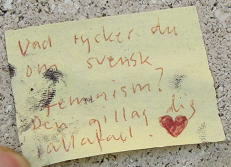 Vad tycker du
om svensk
feminism?
Den gillar dig
iallafall.